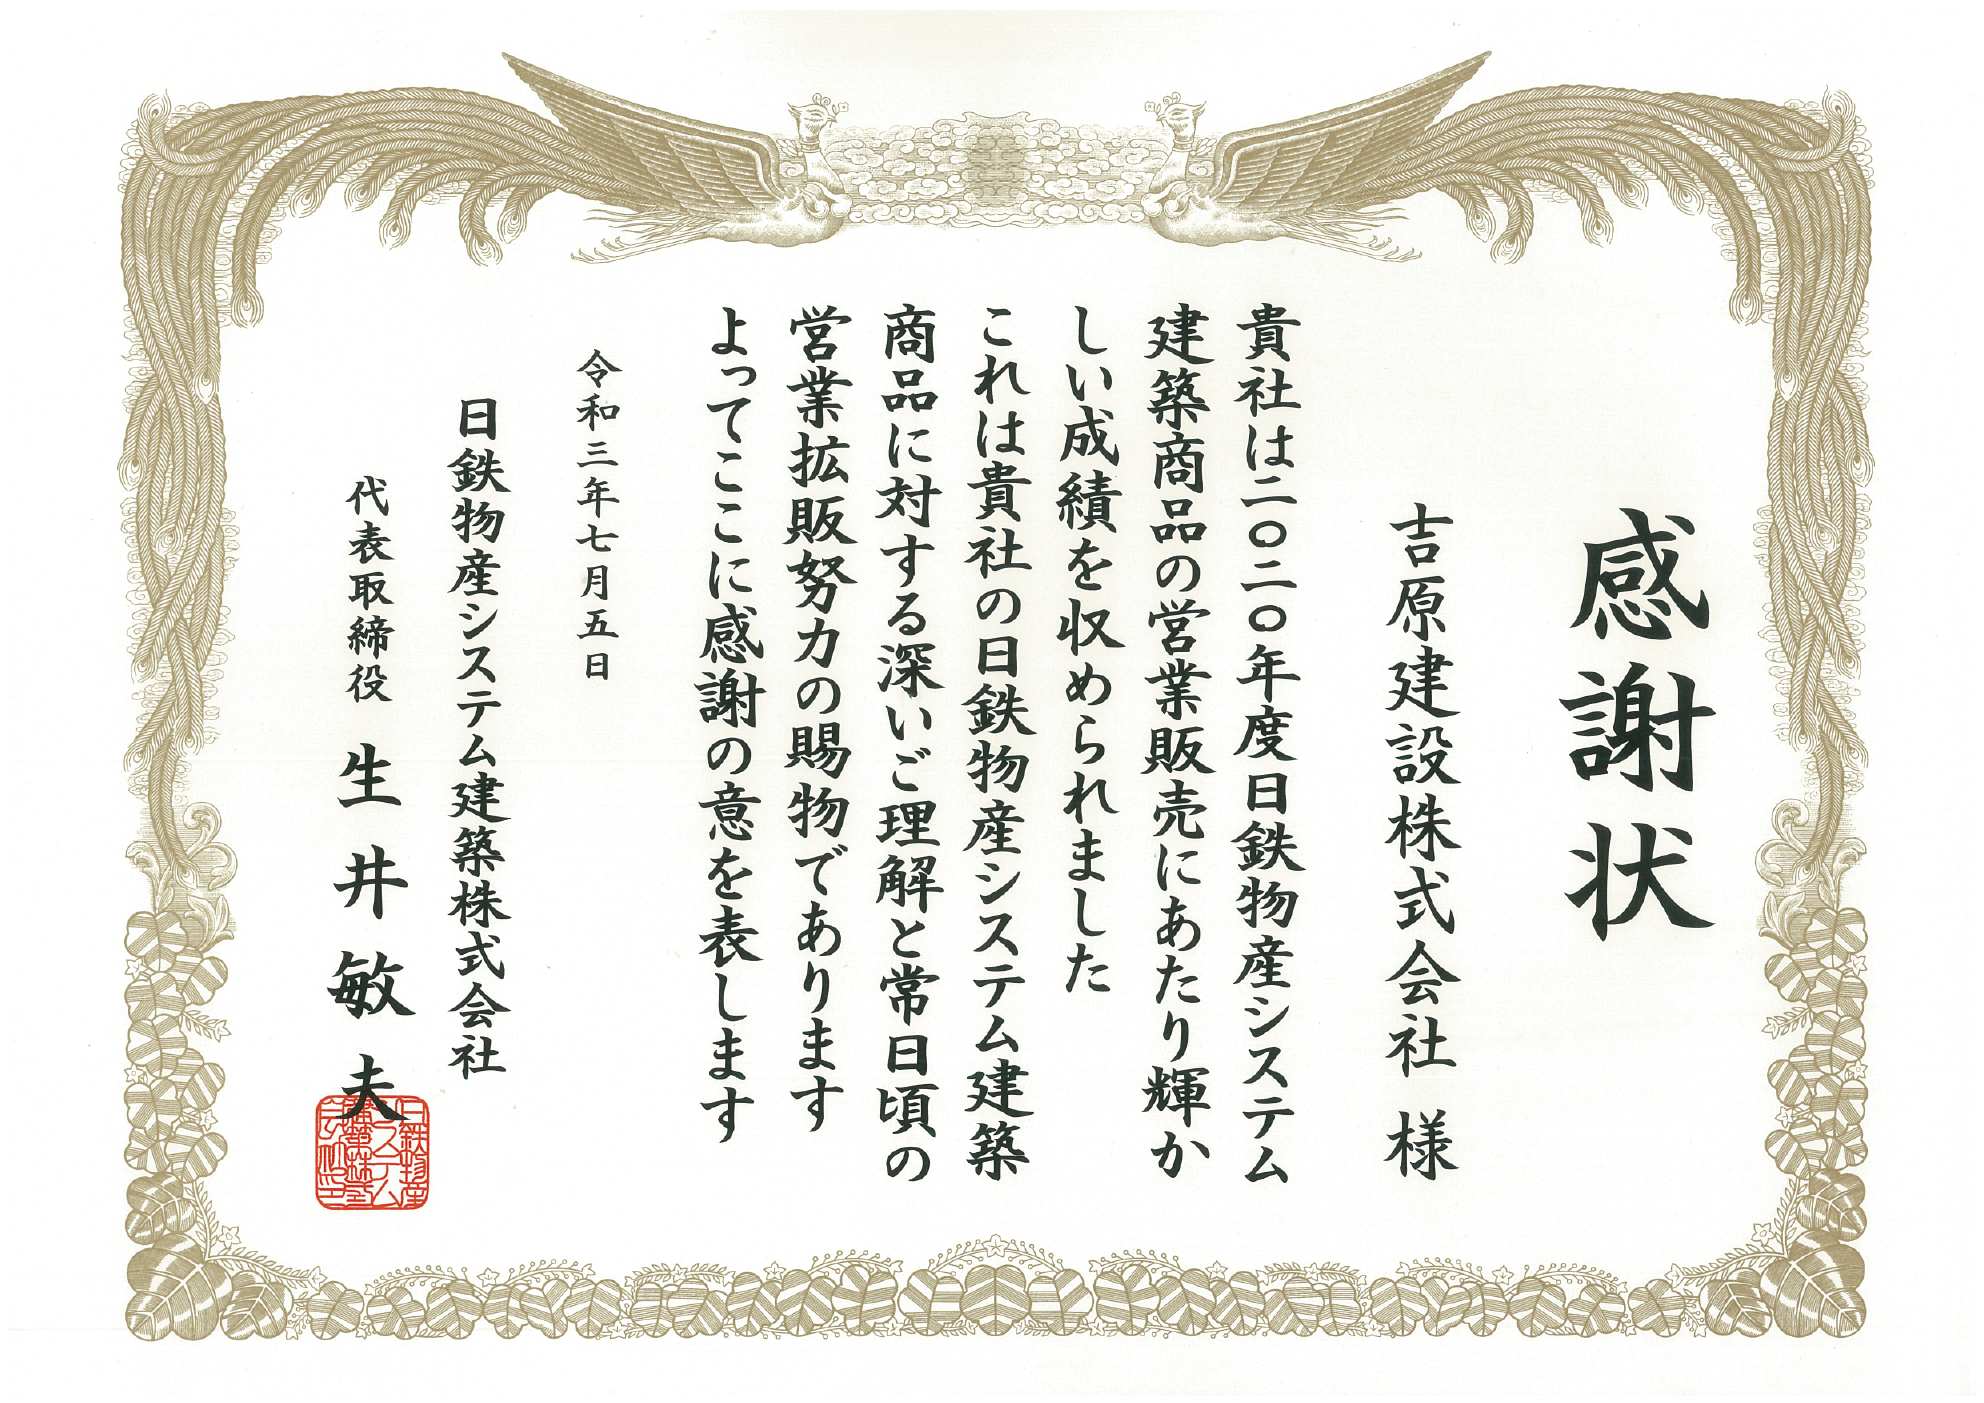 感謝状
吉原建設株式会社 様
貴社は二〇二〇年度日鉄物産システム
建築商品の営業販売にあたり輝か
しい成績を収められました
これは貴社の日鉄物産システム建築
商品に対する深いご理解と常日頃の
営業拡販努力の賜物であります
よってここに感謝の意を表します
令和三年七月五日
日鉄物産システム建築株式会社
代表取締役 生井敏夫
日鉄物産
システム
建築株式
会社印